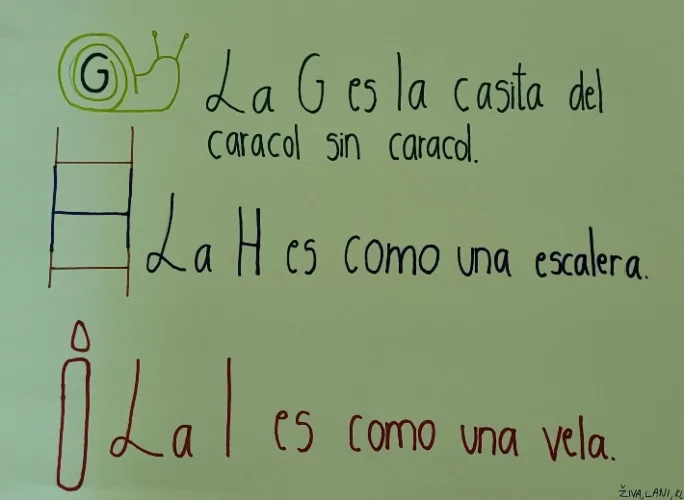 G
La G es la casita del
caracol sin caracol.
La H es como una escalera.
La I es como una vela.
ŽIVA, LANI, KI